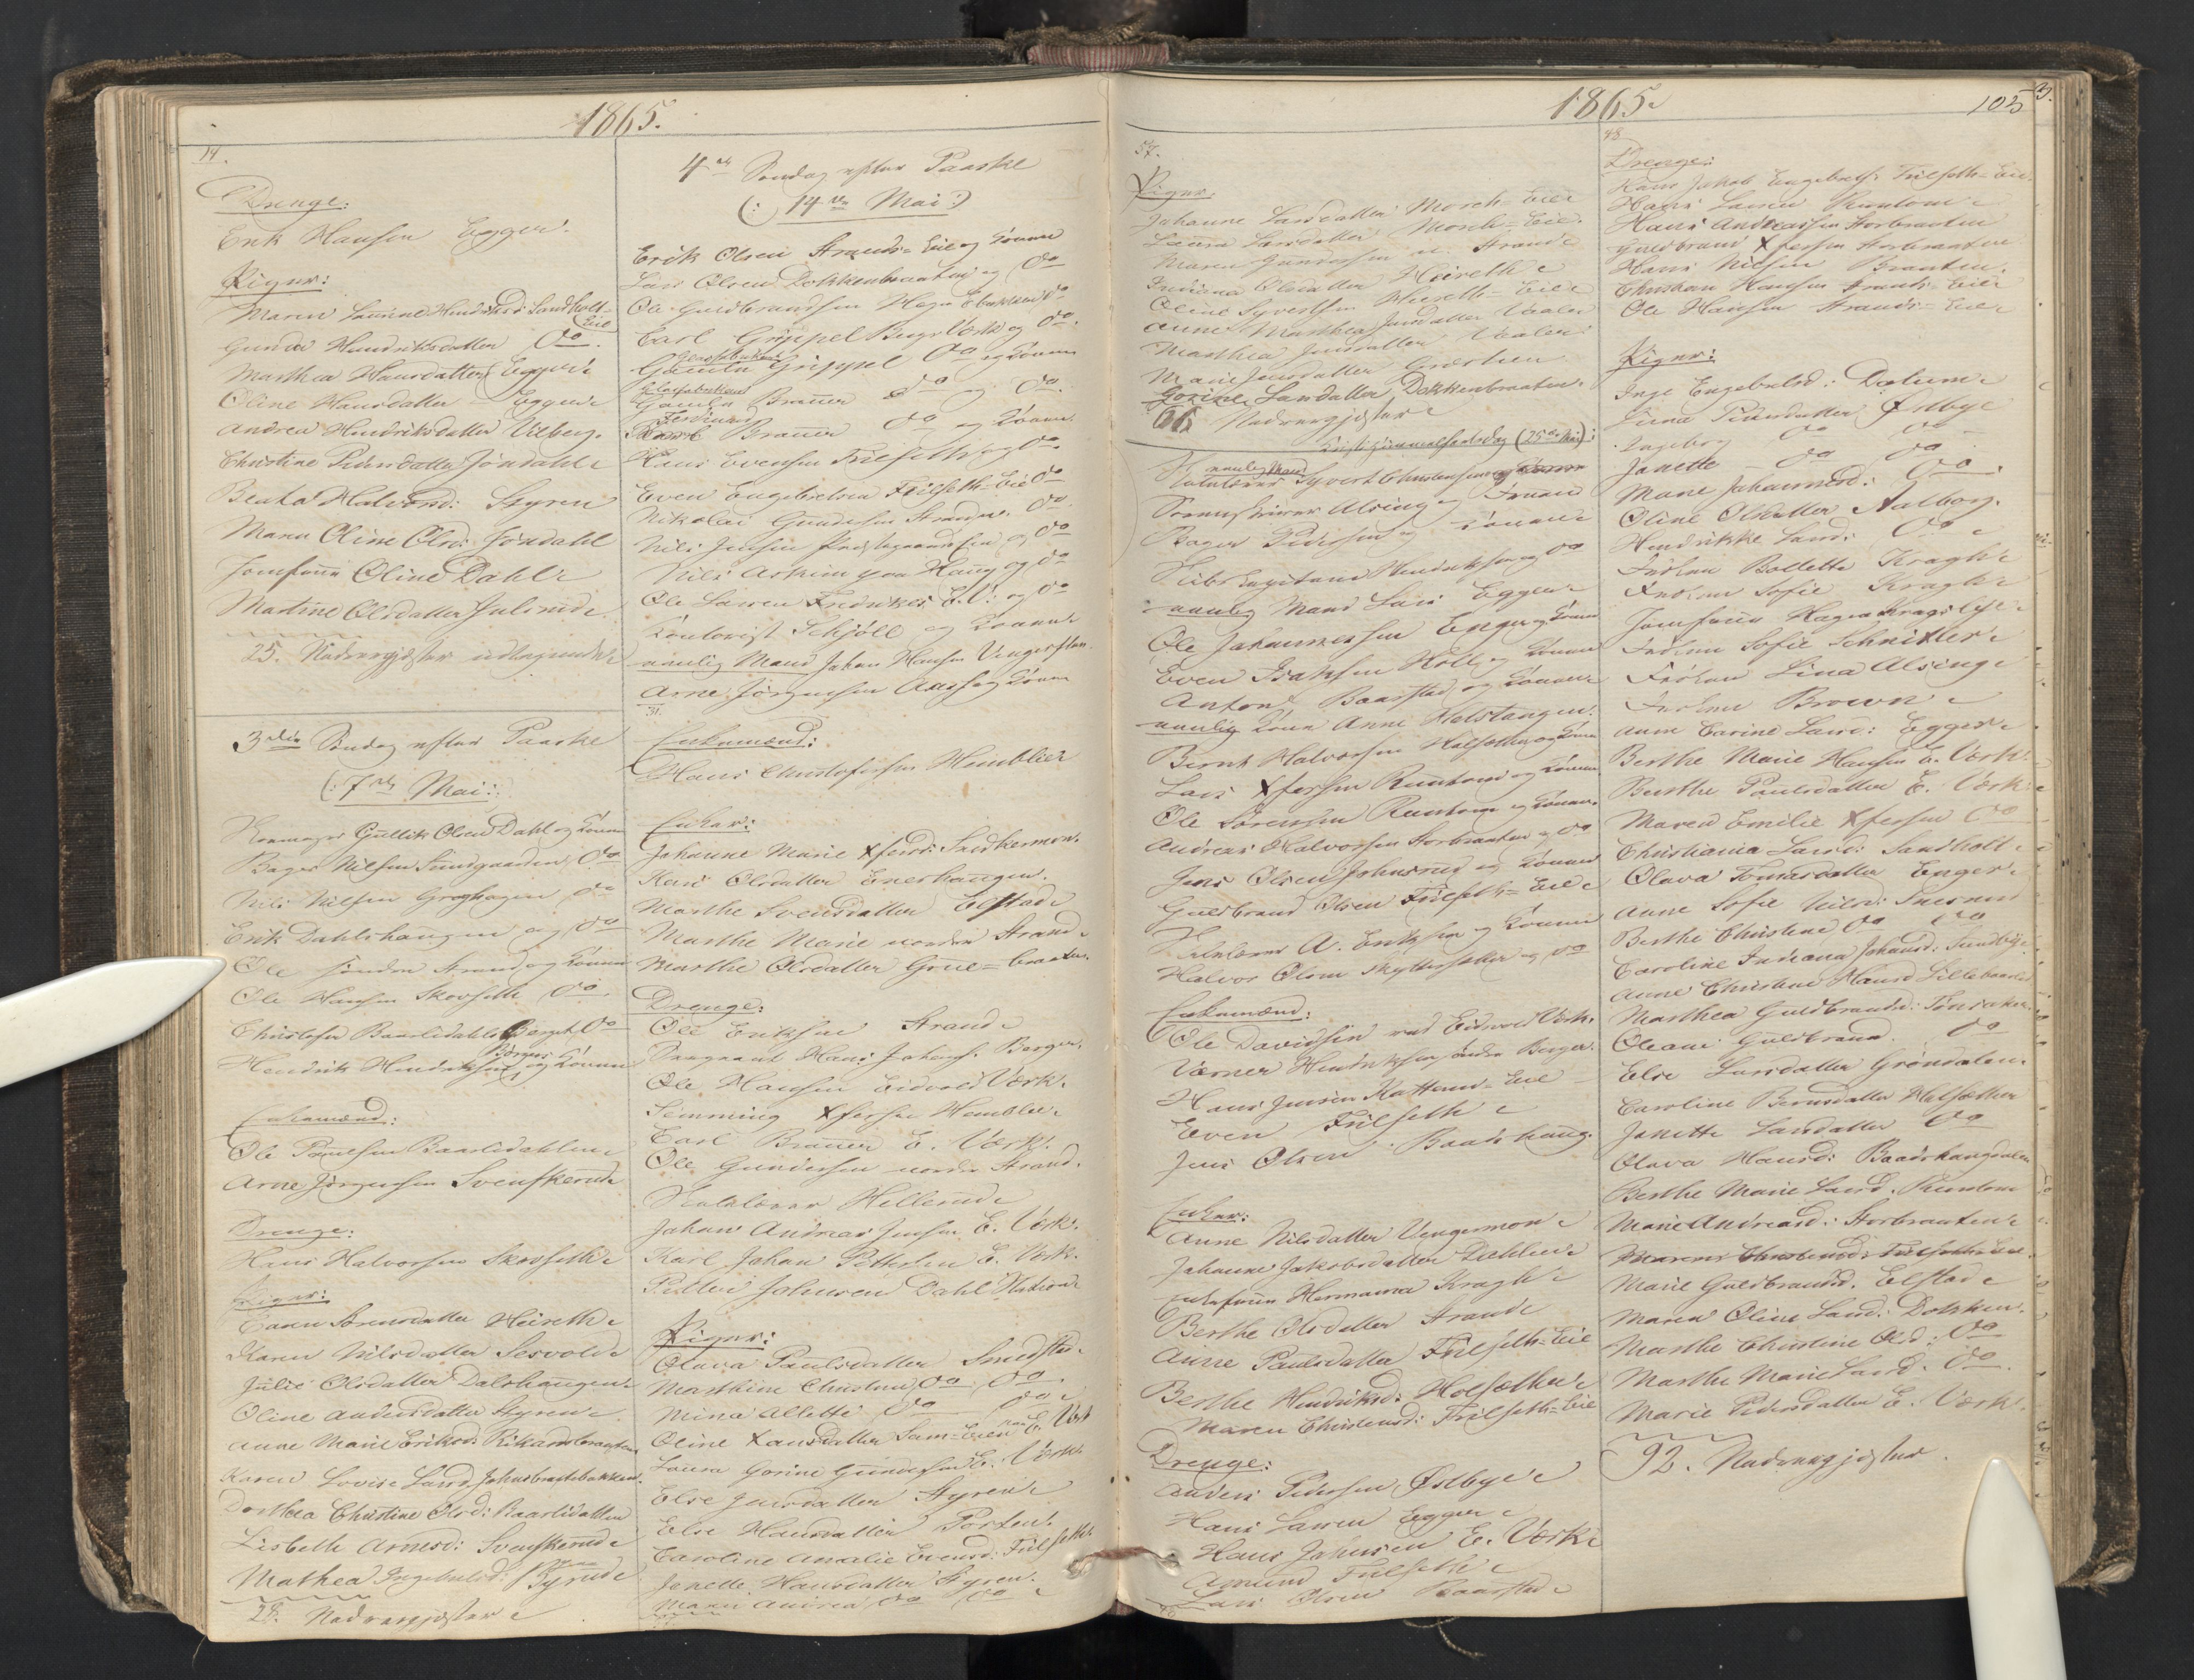 1865.
14.
Drenge:
Erik Hansen Egger.
Piger:
Maren Laurine Hendriksd: Sandholt-
Eie
Gunda Hendriksdatter Do.
Marthea Hansdatter Egger
Oline Hansdatter Egger
Andrea Hendriksdatter Vilberg.
Christine Pedersdatter Jøndahl
Beata Halvorsd: Styren
Maren Oline Olsd: Jøndahl
Jomfrue Oline Dahl
Martine Olsdatter Julsrud
25. Nadvergjester
3die Søndag efter Paaske
(: 7de Mai:)
Gullik Olsen Dahl og Konen
Bager Nilsen Sundgaarden Do
Nils Nilsen Do
Erik Dahlshaugen og Do
Ole søndre Strand og Konen
Ole Hansen Skovseth Do.
Christofer Baarlidahls Berget Do
Hendrik Hendriksen og Konen
Enkemænd:
Ole Paulsen Baarlidahlen
Arne Jørgensen Svenskerud
Drenge:
Hans Halvorsen Skovseth
Piger:
Karen Sørensdatter Heireth
Karen Nilsdatter Sesvold
Julie Olsdatter Dalshaugen
Oline Andersdatter Styren
Anne Marie Eriksd: Rikardsbraaten
Karen Lovise Larsd:
Dorthea Christine Olsd: Baarlidalen
Lisbeth Arnesd: Svenskerud
Mathea Ingebretsd: Byrud
28. Nadvergjester
4de Søndag efter Paaske
(: 14de Mai:)
Erik Olsen Strands-Eie og Konen
Lars Olsen Dokkenbraaten og Do
Ole Guldbrandsen Do
Carl Grippel Bugs Værk og Do.
Glasfabrikant
Grippel Do og Konen
Glasfabrikant
Brauer Do og Do.
Ferdinand
Brauer Do og Konen
Hans Evensen Frilseth og Do.
Even Engebretsen Frilseth-Eie Do
Nikolai Gundersen Strand Do.
Nils Jensen og Do
Nils Askim paa Haug og Do
Ole Larsen og Do
Kontorist Schjøll og Konen
nemlig Mand Johan Hansen
Arne Jørgensen og Konen
31.
Enkemænd:
Hans Christofersen Hemblier
Enker:
Johanne Marie Xfersd:
Kari Olsdatter Enershaugen.
Marthe Svensdatter Elstad
Marthe Marie nordre Strand
Marthe Olsdatter Grue-braaten.
Drenge:
Ole Eriksen Strand
Sergeant Hans Johans. Berger.
Ole Hansen Eidsvold Værk.
Semming Xfersen Hemblie
Carl Brauer E. Værk.
Ole Gundersen nordre Strand.
Skolelærer Hillerud
Johan Andreas Jensen E. Værk.
Karl Johan Pettersen E. Værk.
Petter Johnsen Dahl
Piger:
Olava Paulsdatter Smedstad
Marthine Christine Do Do.
Mina Alette Do Do
Oline Xansdatter E. Værk
Laura Gorine Gundersen E. Værk.
Else Jensdatter Styren
Else Hansdatter Porten.
Caroline Amalie Evensd: Frilseth
Janette Hansdatter Styren.
Maren Andrea Do Do
1865
105
57.
Piger.
Johanne Larsdatter Morch-Eie
Laura Larsdatter Morch-Eie.
Maren Gundersen n Strand
Indiana Olsdatter Heireth
Oline Syvertsen Heireth-Eie
Anne Marthea Jensdatter Vaaler
Marthea Jensdatter Vaaler
Marie Jensdatter
Gorine Larsdatter Dokkenbraaten.
66 Nadvergjester
Kristi Himmelfartsdag (25de Mai):
nemlig Mand
Skolelærer Syvert Christensen og Konen
Sorenskriver Alsing og Fruen
Bager Pedersen og Konen
Hendriksen og Do
nemlig Mand Lars Egger
Ole Johannesen Enger og Konen
Even Isaksen Holt og Konen
Anton Baarstad og Konen
nemlig Kone Anne Holstangen.
Bernt Halvorsen Holsæther og Kone
Lars Xfersen Runtom og Konen
Ole Sørensen Runtom og Konen
Andreas Halvorsen Storbraaten og Do
Jens Olsen Johnsrud og Konen
Guldbrand Olsen Frilseth-Eie
Skolelærer A. Eriksen og Konen
Halvor Olsen Skyttersetter og Do
Enkemænd:
Ole Davidsen ved Eidsvold Værk.
Verner Hendriksen søndre Berger.
Hans Jensen Eie
Even Frilseth
Jens Olsen Baadshaug.
Enker:
Anne Nilsdatter Vengermoen
Johanne Jakobsdatter Dahlen
Hermanna Kragh
Berthe Olsdatter Strand
Anne Paulsdatter Frilseth-Eie
Berthe Hendriksd: Holsæther
Maren Christensd: Frilseth-Eie
Drenge:
Anders Pedersen Østbye
Hans Larsen Egger
Hans Johnsen E. Værk
Amund Frilseth
Lars Olsen Baarstad
48
Drenge:
Hans Jakob Engebrets. Frilseth-Eie.
Hans Larsen Runtom
Hans Andreassen Storbraaten
Guldbrand Xfersen Storbraaten
Hans Nilsen Braaten.
Christian Hansen Strands-Eie
Ole Hansen Strands-Eie
Piger:
Inge Engebretsd: Dælum
Pedersdatter Østbye
Ingeborg Do Do
Janette Do Do
Marie Johannesd: Do.
Oline Olsdatter Aalborg.
Hendrikke Larsd: Do
Frøken Bollette Kragh
Frøken Sofie Kragh
Jomfrue Hagen
Frøken Sofie Schnitler
Frøken Lina Alsing
Frøken Brown
Anne Carine Larsd: Egger
Berthe Marie Hansen E. Værk.
Berthe Paulsdatter E. Værk.
Maren Emilie Xfersen Do
Christiania Larsd: Sandholt
Olava Tomasdatter Enger
Anne Sofie Nilsd:
Berthe Christine Do Do
Caroline Indiana Johansd: Sundbye
Anne Christine Hansd
Marthea Guldbrandsd:
Oleane Guldbrand. Do
Else Larsdatter Grøndalen.
Caroline Berntsdatter Holsæther
Janette Larsdatter Do
Olava Hansd: Baadshaugdalen
Berthe Marie Larsd. Runtom
Marie Andreasd: Storbraaten
Maren Christensd: Frilseth-Eie
Marie Guldbrandsd. Elstad
Maren Oline Larsd: Dokken.
Marthe Christine Olsd: Do
Marthe Marie Larsd. Do.
Marie Pedersdatter E. Værk.
92. Nadvergjester.